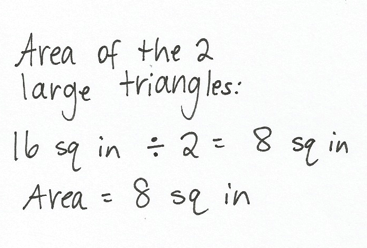 Area of the 2
large triangles:
16 sq in ÷ 2 = 8 sq in
Area = 8 sq in